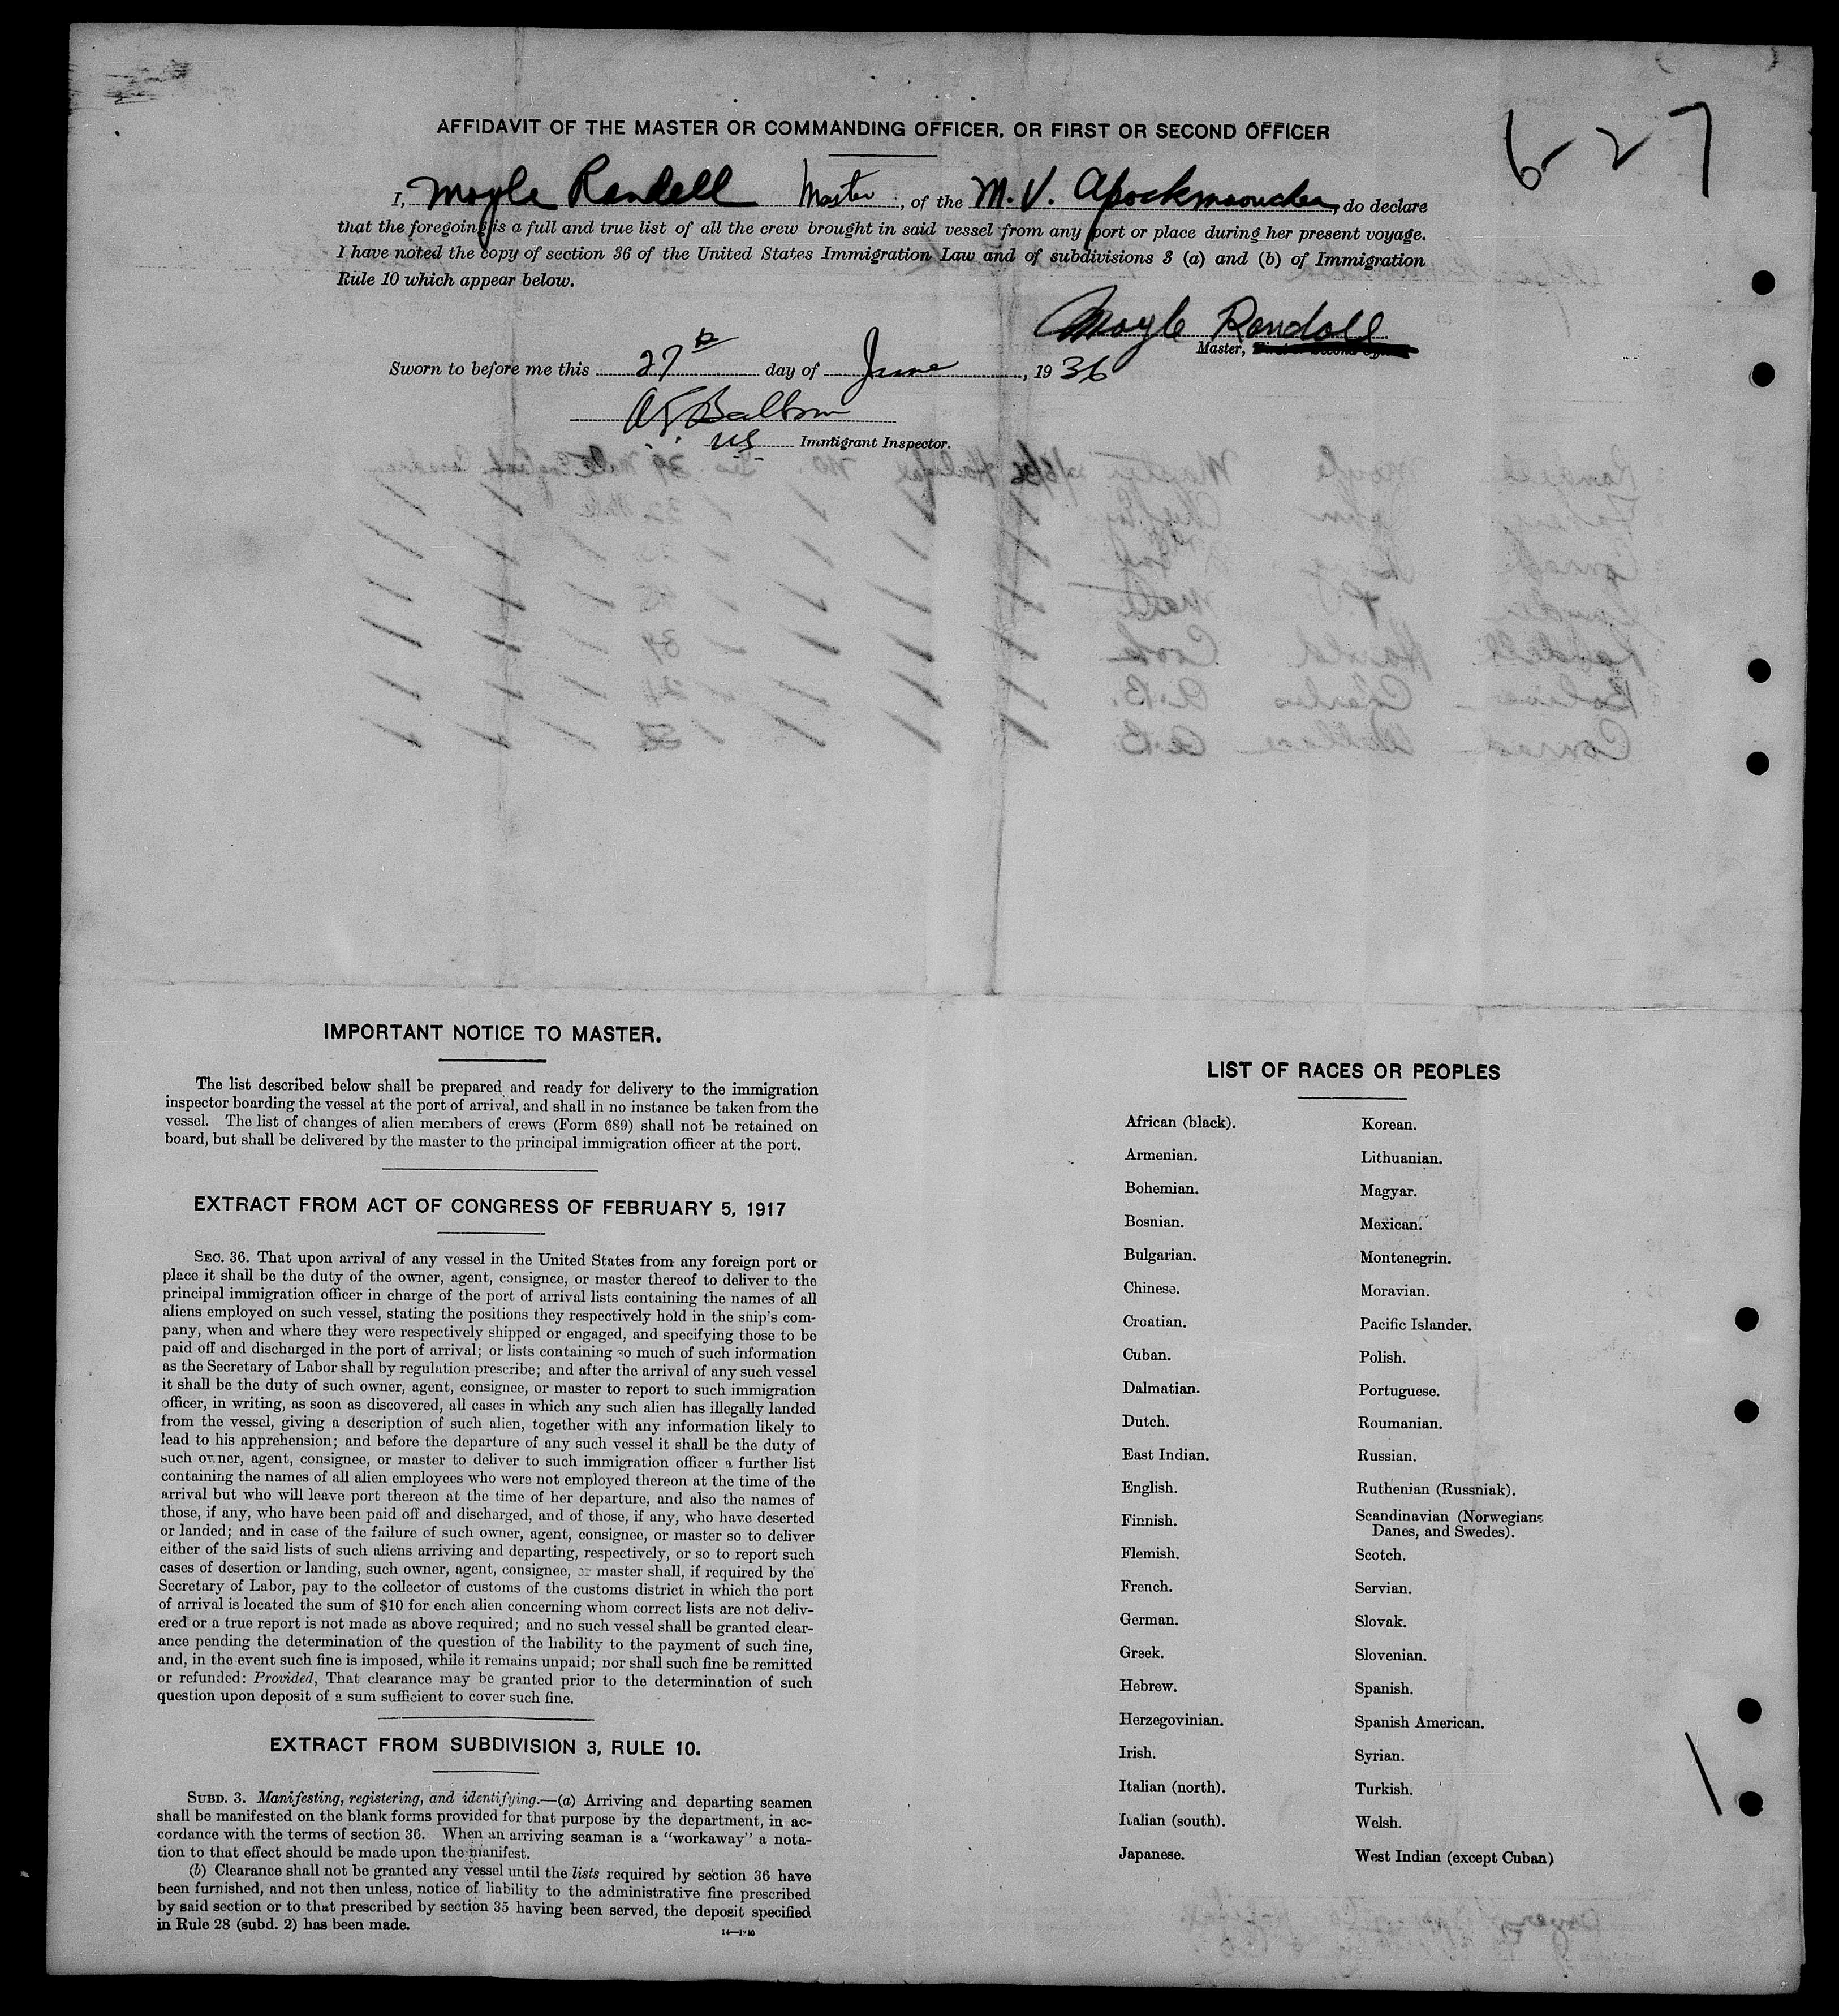 AFFIDAVIT OF THE MASTER OR COMMANDING OFFICER, OR FIRST OR SECOND OFFICER
6-27
I, Moyle Randell Master, of the M.V. Apockmoouche, do declare
that the foregoing is a full and true list of all the crew brought in said vessel from any port or place during her present voyage.
I have noted the copy of section 36 of the United States Immigration Law and of subdivisions 3 (a) and (b) of Immigration
Rule 10 which appear below.
Moyle Randell
Master,
Sworn to before me this 27th day of June, 1936
US Immigrant Inspector.
IMPORTANT NOTICE TO MASTER.
The list described below shall be prepared and ready for delivery to the immigration
inspector boarding the vessel at the port of arrival, and shall in no instance be taken from the
vessel. The list of changes of alien members of crews (Form 689) shall not be retained on
board, but shall be delivered by the master to the principal immigration officer at the port.
EXTRACT FROM ACT OF CONGRESS OF FEBRUARY 5, 1917
SEC. 36. That upon arrival of any vessel in the United States from any foreign port or
place it shall be the duty of the owner, agent, consignee, or master thereof to deliver to the
principal immigration officer in charge of the port of arrival lists containing the names of all
aliens employed on such vessel, stating the positions they respectively hold in the ship's com-
pany, when and where they were respectively shipped or engaged, and specifying those to be
paid off and discharged in the port of arrival; or lists containing so much of such information
as the Secretary of Labor shall by regulation prescribe; and after the arrival of any such vessel
it shall be the duty of such owner, agent, consignee, or master to report to such immigration
officer, in writing, as soon as discovered, all cases in which any such alien has illegally landed
from the vessel, giving a description of such alien, together with any information likely to
lead to his apprehension; and before the departure of any such vessel it shall be the duty of
such owner, agent, consignee, or master to deliver to such immigration officer a further list
containing the names of all alien employees who were not employed thereon at the time of the
arrival but who will leave port thereon at the time of her departure, and also the names of
those, if any, who have been paid off and discharged, and of those, if any, who have deserted
or landed; and in case of the failure of such owner, agent, consignee, or master so to deliver
either of the said lists of such aliens arriving and departing, respectively, or so to report such
cases of desertion or landing, such owner, agent, consignee, or master shall, if required by the
Secretary of Labor, pay to the collector of customs of the customs district in which the port
of arrival is located the sum of $10 for each alien concerning whom correct lists are not deliv-
ered or a true report is not made as above required; and no such vessel shall be granted clear-
ance pending the determination of the question of the liability to the payment of such fine,
and, in the event such fine is imposed, while it remains unpaid; nor shall such fine be remitted
or refunded: Provided, That clearance may be granted prior to the determination of such
question upon deposit of a sum sufficient to cover such fine.
EXTRACT FROM SUBDIVISION 3, RULE 10.
SUBD. 3. Manifesting, registering, and identifying.—(a) Arriving and departing seamen
shall be manifested on the blank forms provided for that purpose by the department, in ac-
cordance with the terms of section 36. When an arriving seaman is a "workaway" a nota-
tion to that effect should be made upon the manifest.
(b) Clearance shall not be granted any vessel until the lists required by section 36 have
been furnished, and not then unless, notice of liability to the administrative fine prescribed
by said section or to that prescribed by section 35 having been served, the deposit specified
in Rule 28 (subd. 2) has been made.
LIST OF RACES OR PEOPLES
African (black). Korean.
Armenian. Lithuanian.
Bohemian. Magyar.
Bosnian. Mexican.
Bulgarian. Montenegrin.
Chinese. Moravian.
Croatian. Pacific Islander.
Cuban. Polish.
Dalmatian. Portuguese.
Dutch. Roumanian.
East Indian. Russian.
English. Ruthenian (Russniak).
Finnish. Scandinavian (Norwegians
Danes, and Swedes).
Flemish. Scotch.
French. Servian.
German. Slovak.
Greek. Slovenian.
Hebrew. Spanish.
Herzegovinian. Spanish American.
Irish. Syrian.
Italian (north). Turkish.
Italian (south). Welsh.
Japanese. West Indian (except Cuban)